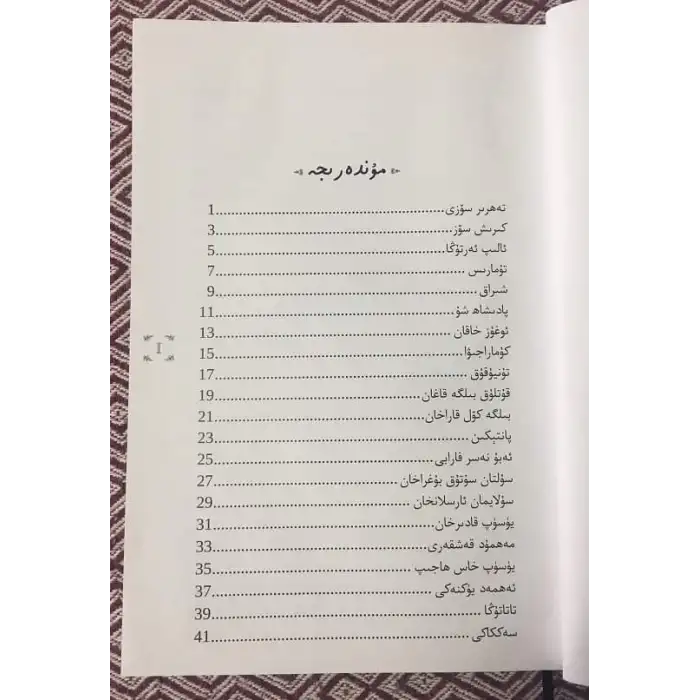 مۇندەرىجە
تەھرىر سۆزى.............................................................1
كىرىش سۆز...............................................................3
ئالىپ ئەرتۇڭا.............................................................5
تۇمارىس ..................................................................7
شىراق......................................................................9
پادىشاھ شۇ................................................................11
ئوغۇز خاقان ...............................................................13
كۇماراجىۋا..................................................................15
تۇنيۇقۇق ...................................................................17
قۇتلۇق بىلگە قاغان........................................................19
بىلگە كۆل قاراخان.........................................................21
پانتېكىن ....................................................................23
ئەبۇ نەسر فارابى............................................................25
سۇلتان سۇتۇق بۇغراخان ..................................................27
سۇلايمان ئارسلانخان .......................................................29
يۈسۈپ قادىرخان............................................................31
مەھمۇد قەشقەرى............................................................33
يۈسۈپ خاس ھاجىپ .......................................................35
ئەھمەد يۈكنەكى ............................................................37
تاتاتۇڭا.......................................................................39
سەككاكى .....................................................................41
I